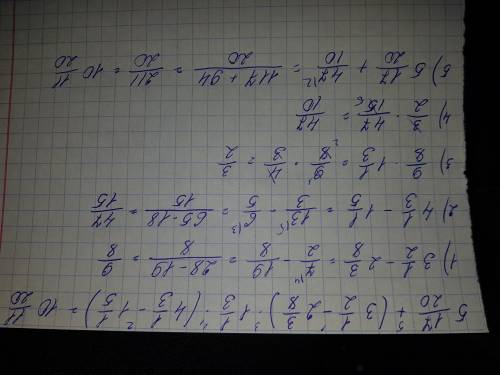 5 17/20 + (3 1/2 - 2 3/8) · 1 1/3 · (4 1/3 - 1 1/5) = 10 11/20
1) 3 1/2 - 2 3/8 = 7/2 - 19/8 = (28-19)/8 = 9/8
2) 4 1/3 - 1 1/5 = 13/3 - 6/5 = (65-18)/15 = 47/15
3) 9/8 · 1 1/3 = 9/8 · 4/3 = 3/2
4) 3/2 · 47/15 = 47/10
5) 5 17/20 + 47/10 = (117+94)/20 = 211/20 = 10 11/20